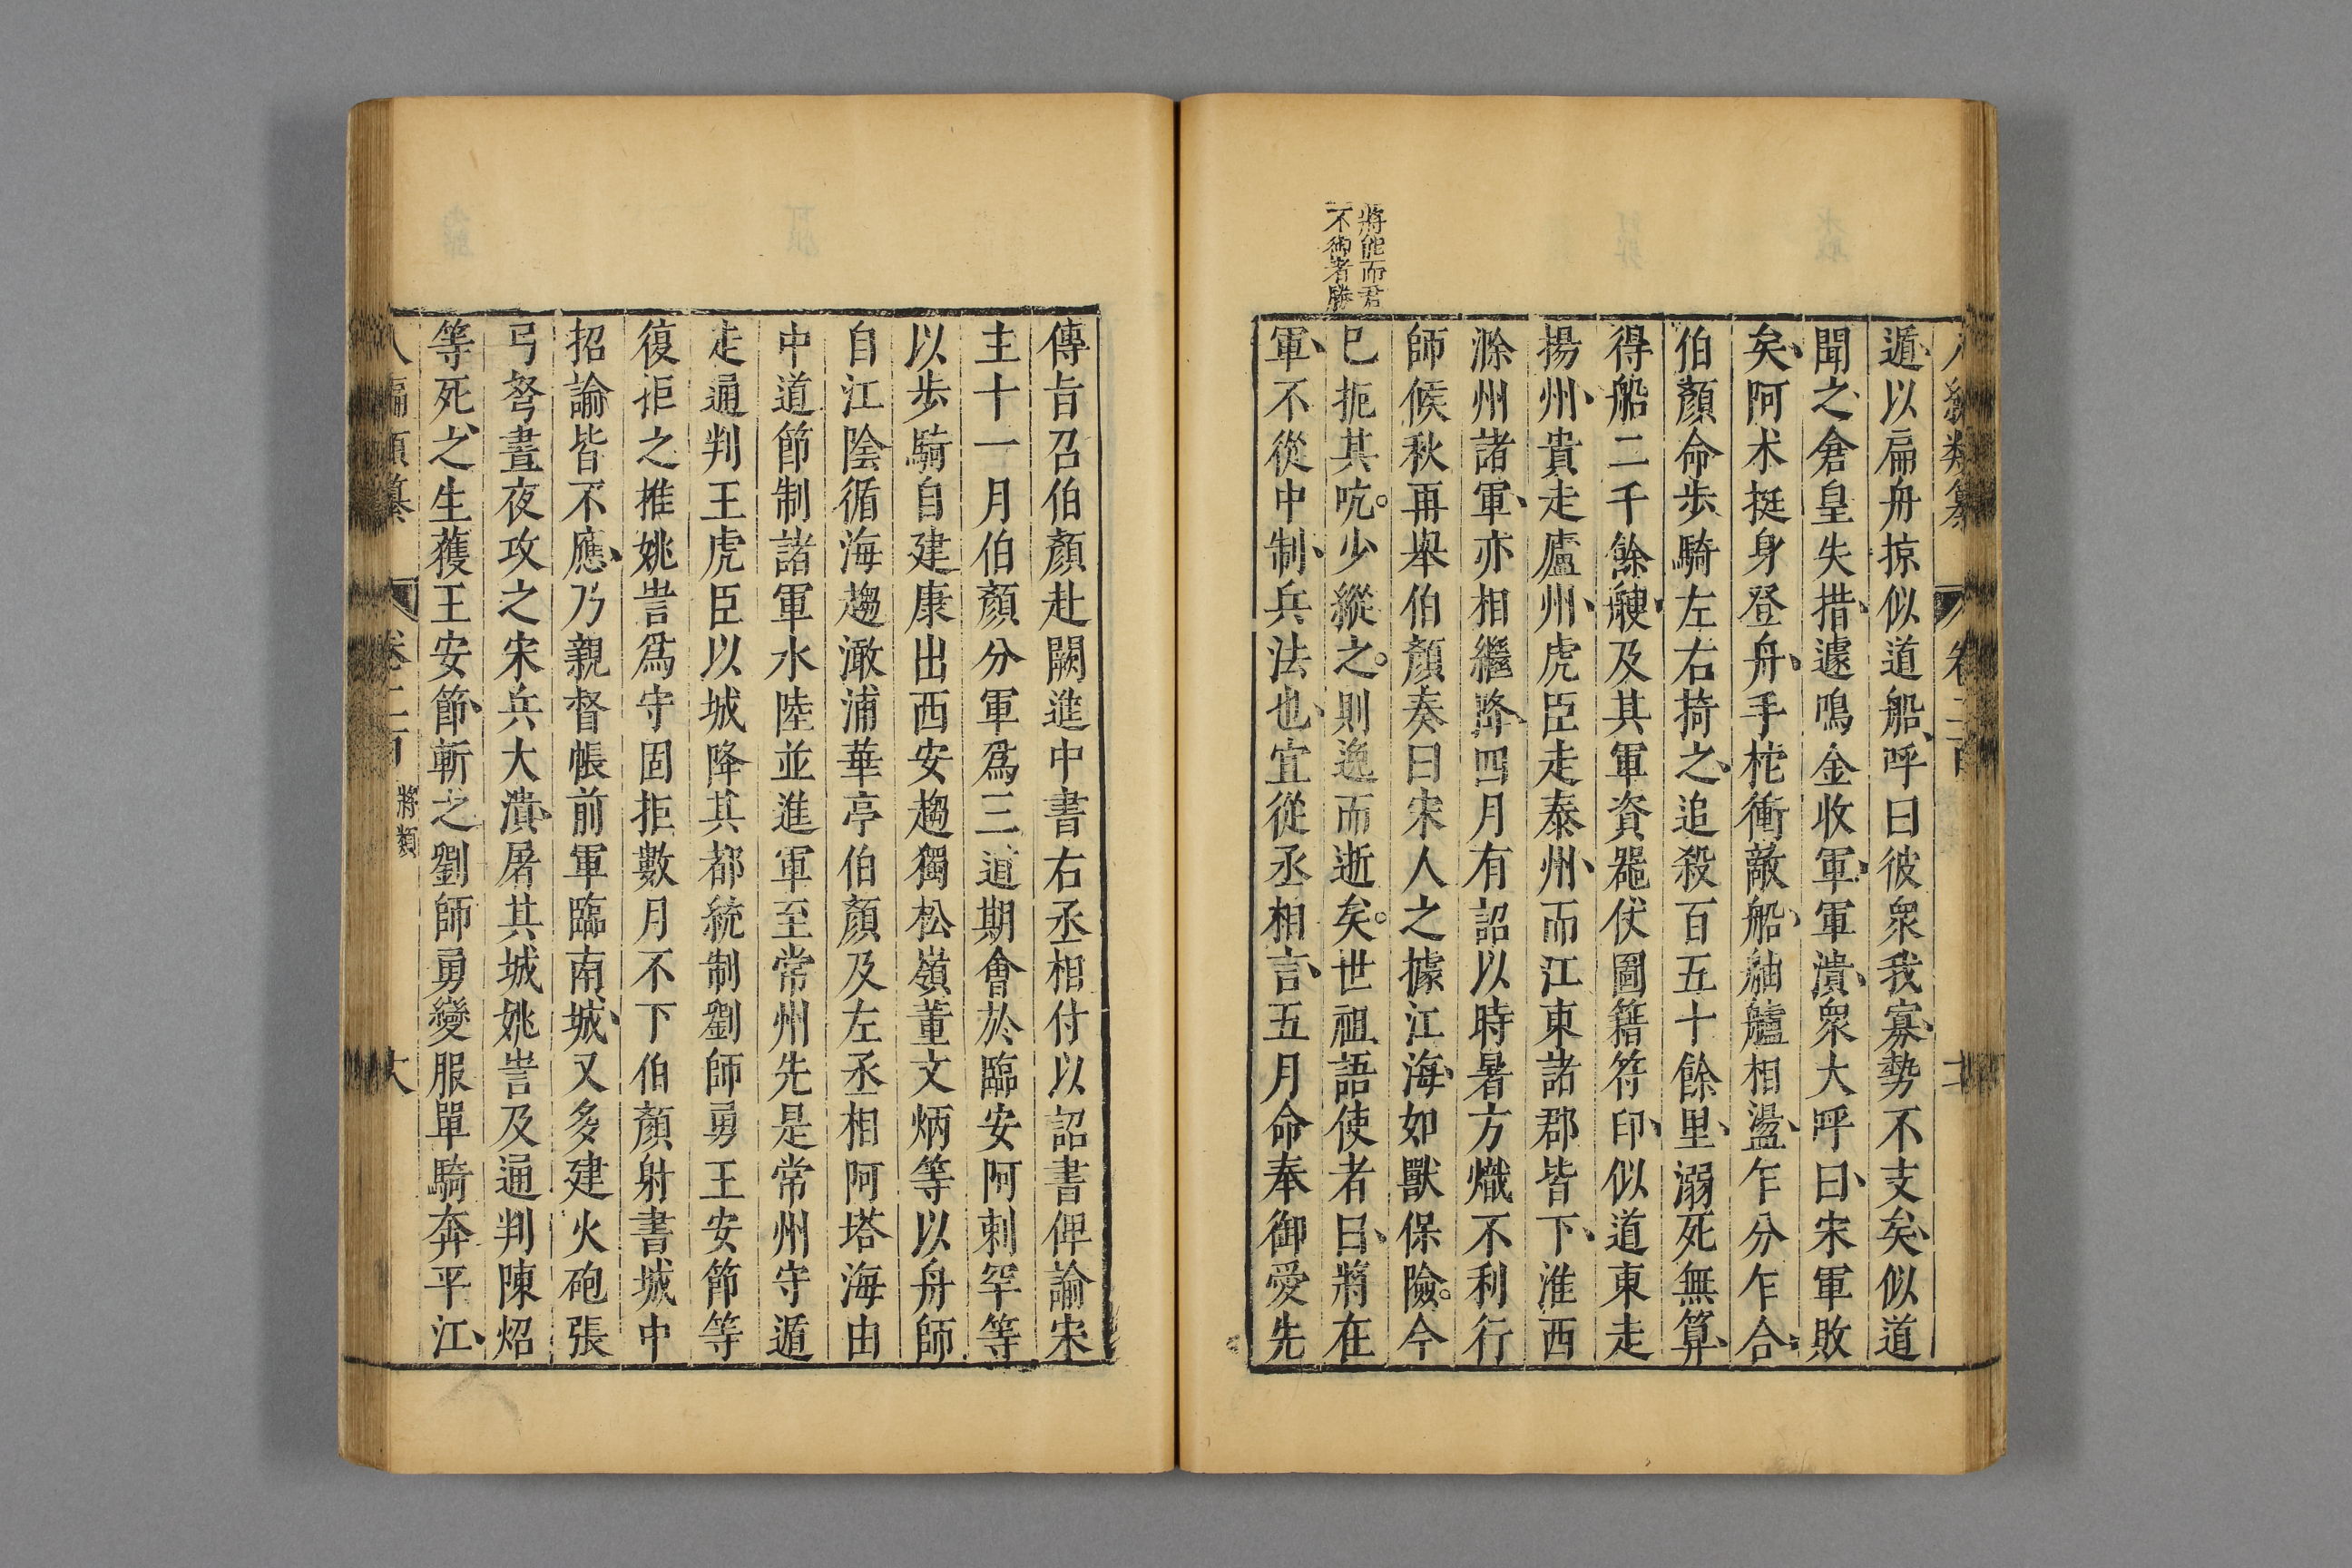 將能而君
不御者勝
遁以扁舟掠似道船呼曰彼衆我寡勢不支矣似道
聞之倉皇失措遽鳴金收軍軍潰衆大呼曰宋軍敗
矣阿术挺身登舟手柁衝敵船舳艫相盪乍分乍合
伯顏命步騎左右掎之追殺百五十餘里溺死無算
得船二千餘艘及其軍資器仗圖籍符印似道東走
揚州貴走廬州虎臣走泰州而江東諸郡皆下淮西
滁州諸軍亦相繼降四月有詔以時暑方熾不利行
師候秋再舉伯顏奏曰宋人之據江海如獸保險今
巳扼其吭少縱之則逸而逝矣世祖語使者曰將在
軍不從中制兵法也宜從丞相言五月命奉御愛先
傳旨召伯顏赴闕進中書右丞相付以詔書俾諭宋
主十一月伯顏分軍爲三道期會於臨安阿剌罕等
以步騎自建康出西安趨獨松嶺董文炳等以舟師
自江陰循海趨澉浦華亭伯顏及左丞相阿塔海由
中道節制諸軍水陸並進軍至常州先是常州守遁
走通判王虎臣以城降其都統制劉師勇王安節等
復拒之推姚訔爲守固拒數月不下伯顏射書城中
招諭皆不應乃親督帳前軍臨南城又多建火砲張
弓弩晝夜攻之宋兵大潰屠其城姚訔及通判陳炤
等死之生獲王安節斬之劉師勇變服單騎奔平江
八編類纂 卷二百 將類